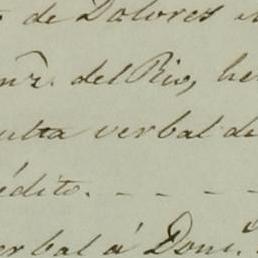 de Dolores
del Rio, he
ulta verbal de
édito. - - - -
erbal á Dom.